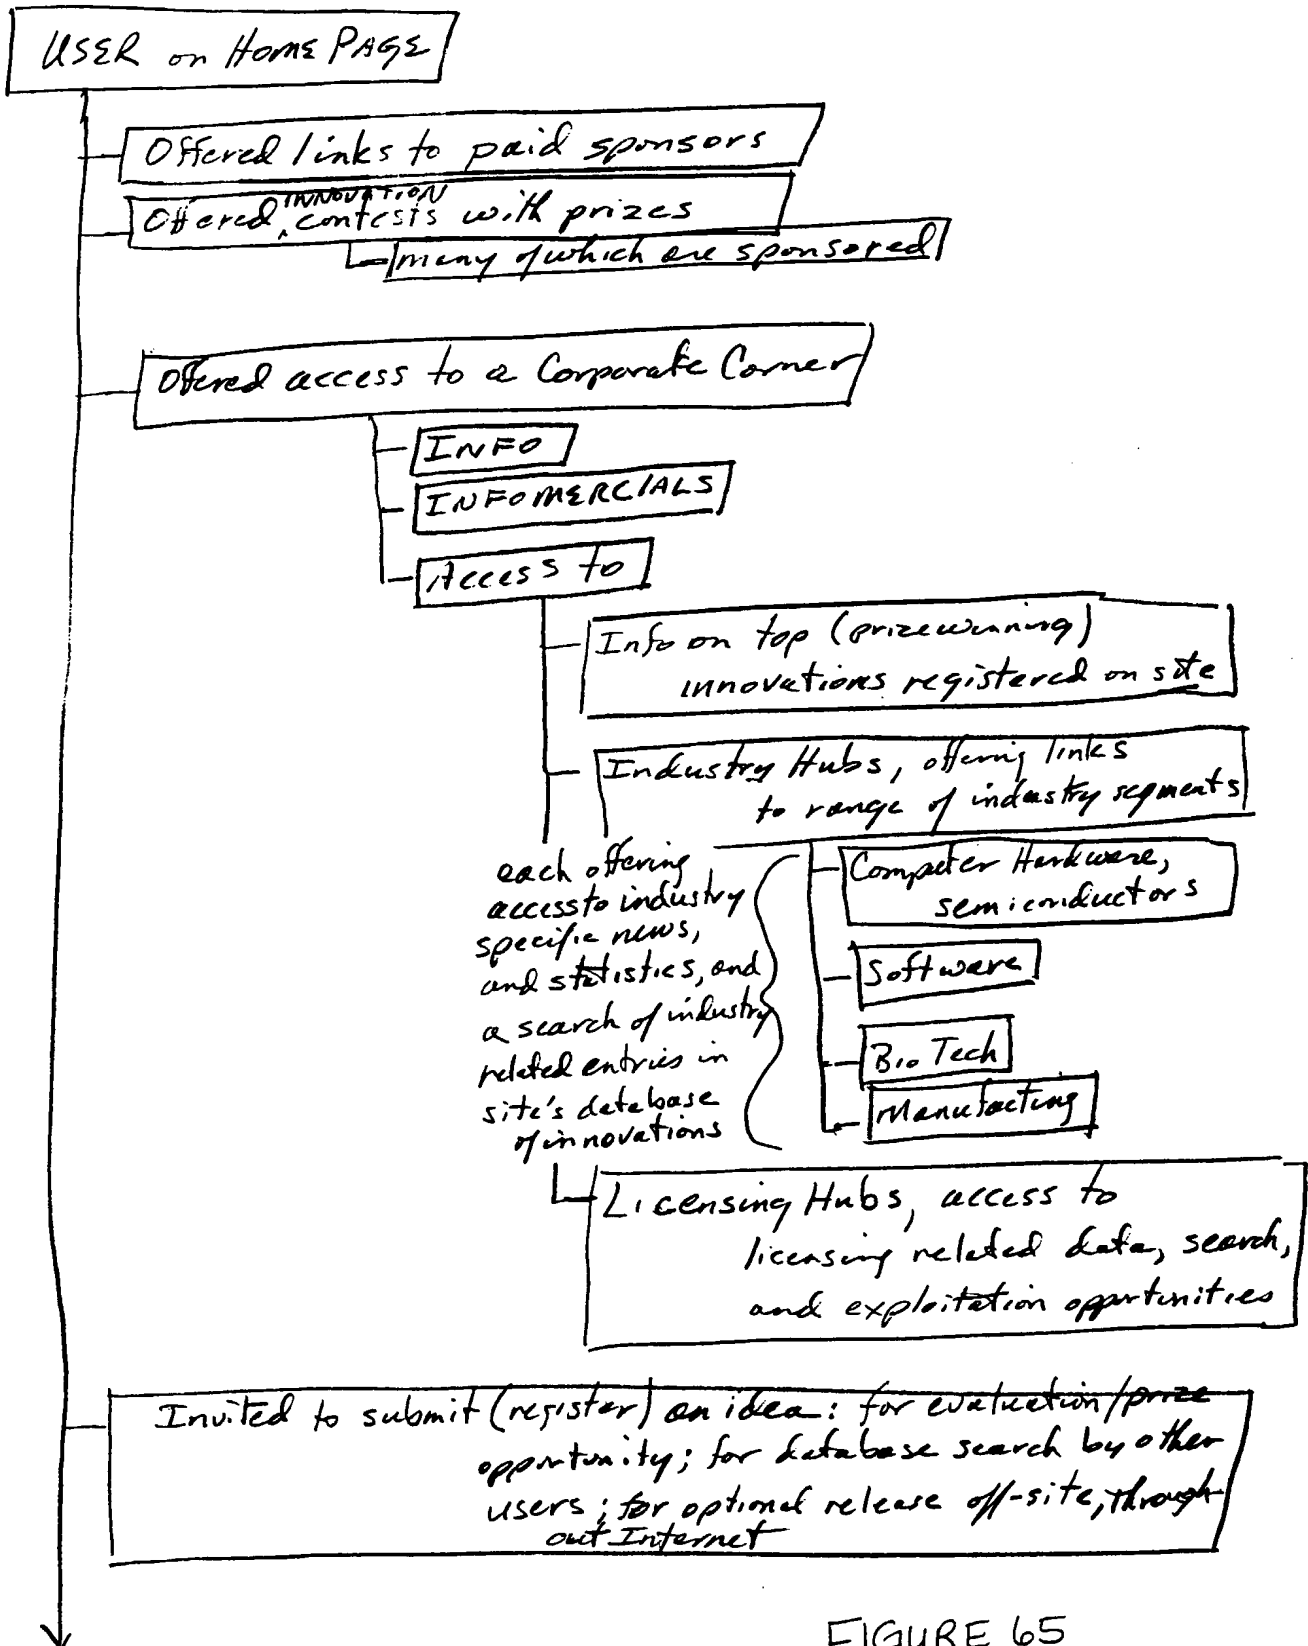 USER on HOME PAGE
Offered links to paid sponsors
INNOVATION
Offered ^ contests with prizes
many of which are sponsored
Offered access to a Corporate Corner
INFO
INFOMERCIALS
Access to
Info on top (prizewinning)
innovations registered on site
Industry Hubs, offering links
to range of industry segments
each offering
access to industry
specific news,
and statistics, and
a search of industry
related entries in
site's database
of innovations
Computer Hardware,
semiconductors
Software
BioTech
Manufacting
Licensing Hubs, access to
licensing related data, search,
and exploitation opportunities
Invited to submit (register) an idea: for evaluation/prize
opportunity; for database search by other
users; for optional release off-site, through-
out Internet
FIGURE 65